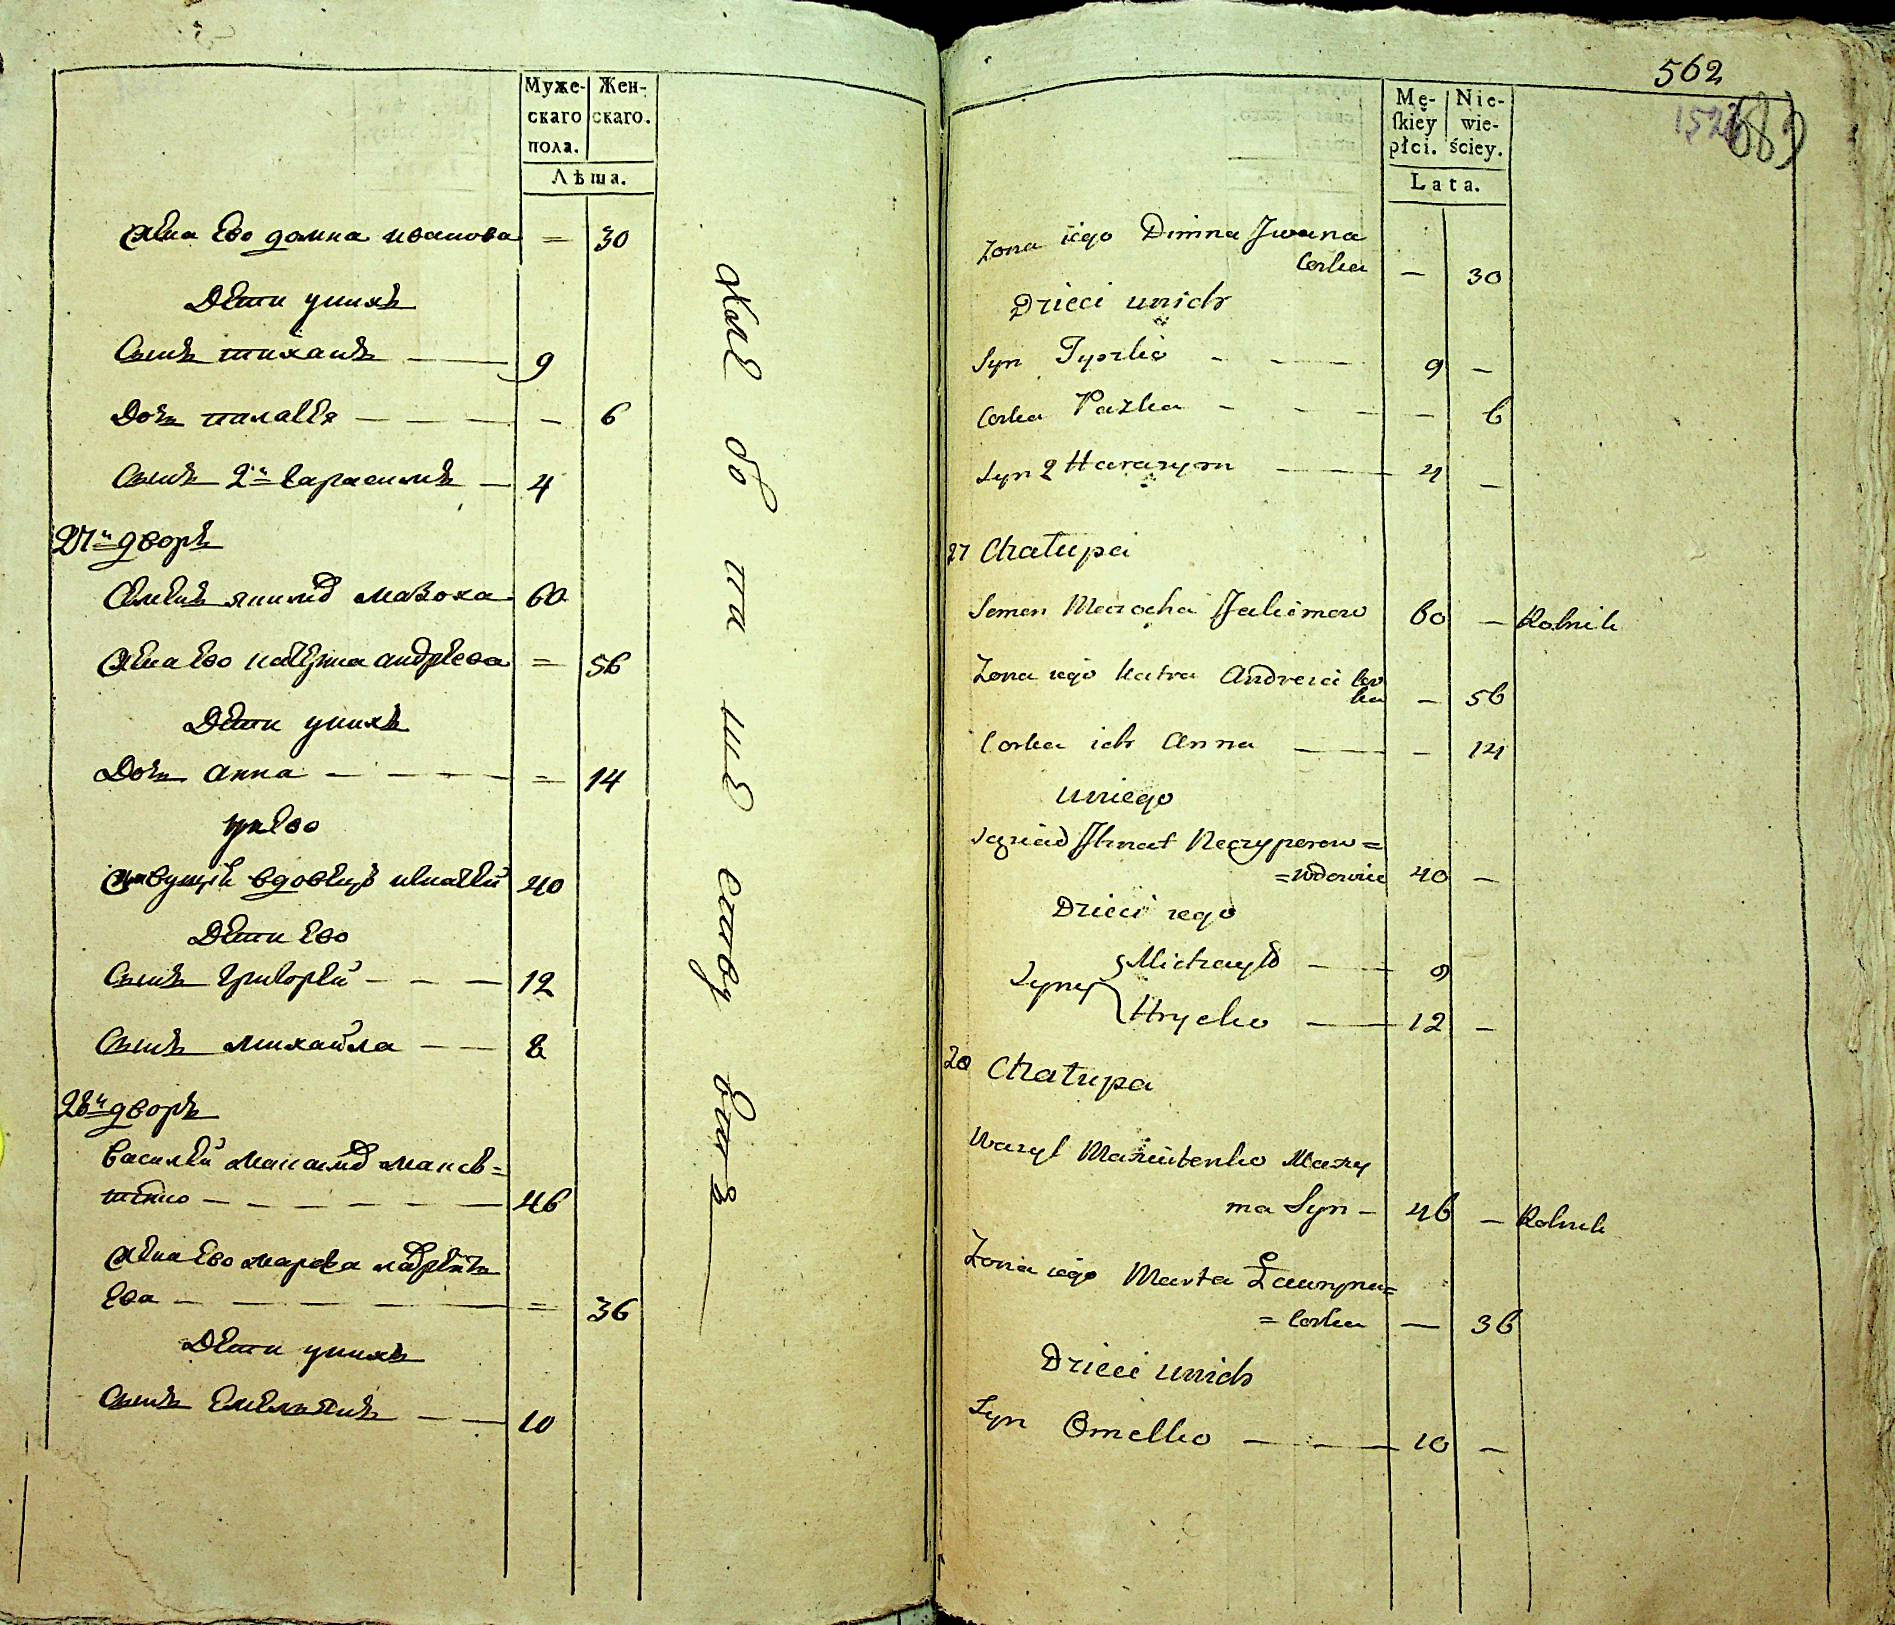 Муже-
скаго
пола.
Жен-
скаго.
Лѣта.
жена ево домна иванова = 30
Дети уних
Сынъ тиханъ 9
Дочь палаѣя - 6
Сынъ 2й Гарасимъ 4
27й дворъ
Семенъ якимов мазоха 60
жена ево катерина андреева = 56
Дети уних
Дочь анна = 14
унево
живущий вдовецъ игнатей 40
Дети ево
Сынъ григорей 12
Сынъ михайла 8
28й дворъ
василей максимов максю=
тенко 46
жена ево марфа лаврентъ
ева = 36
Дети уних
Сынъ емельянъ 10
562
Mę-
ſkiéy
płci.
Nie-
wie-
ściey.
Lata.
Zona iego Dimna Jwana
Corka - 30
Dzieci unich
Syn Tyszko 9 -
Corka Pazka - 6
Syn 2 Harazym 4 -
27 Chałupa
Semen Mazocha Jakimow 60 - Rolnik
Zona iego Katra Andreia Cor
ka - 56
Corka ich Anna - 14
Uniego
Sąsiad Ihnat Neczyporow =
= wdowiec 40 -
Dzieci iego
Syny Michayło 9
Hrycko 12 -
28 Chałupa
Wasyl Maxiutenko Maxy
ma Syn - 46 - Rolnik
Zona iego Marta Ławryna=
= Corka - 36
Dzieci unich
Syn Omelko 10 -